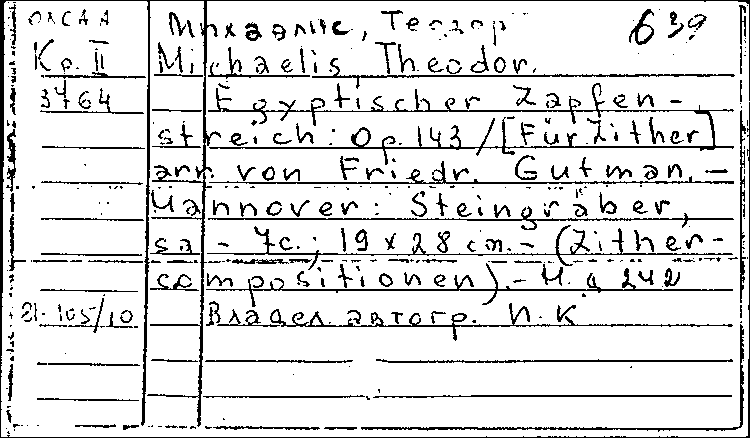 ОХСАА
Михаэлис, Теодор 639
Кр. II Michaelis, Theodor.
3764 Egyptischer Zapfen-
streich: Op. 143 / [Für Zither]
arr. von Friedr. Gutman. –
Hannover: Steingräber,
sa – 7c.; 19 x 28 cm. – (Zither-
compositionen). – Н. д. 242
21-105/10 Владел. автогр. И. К